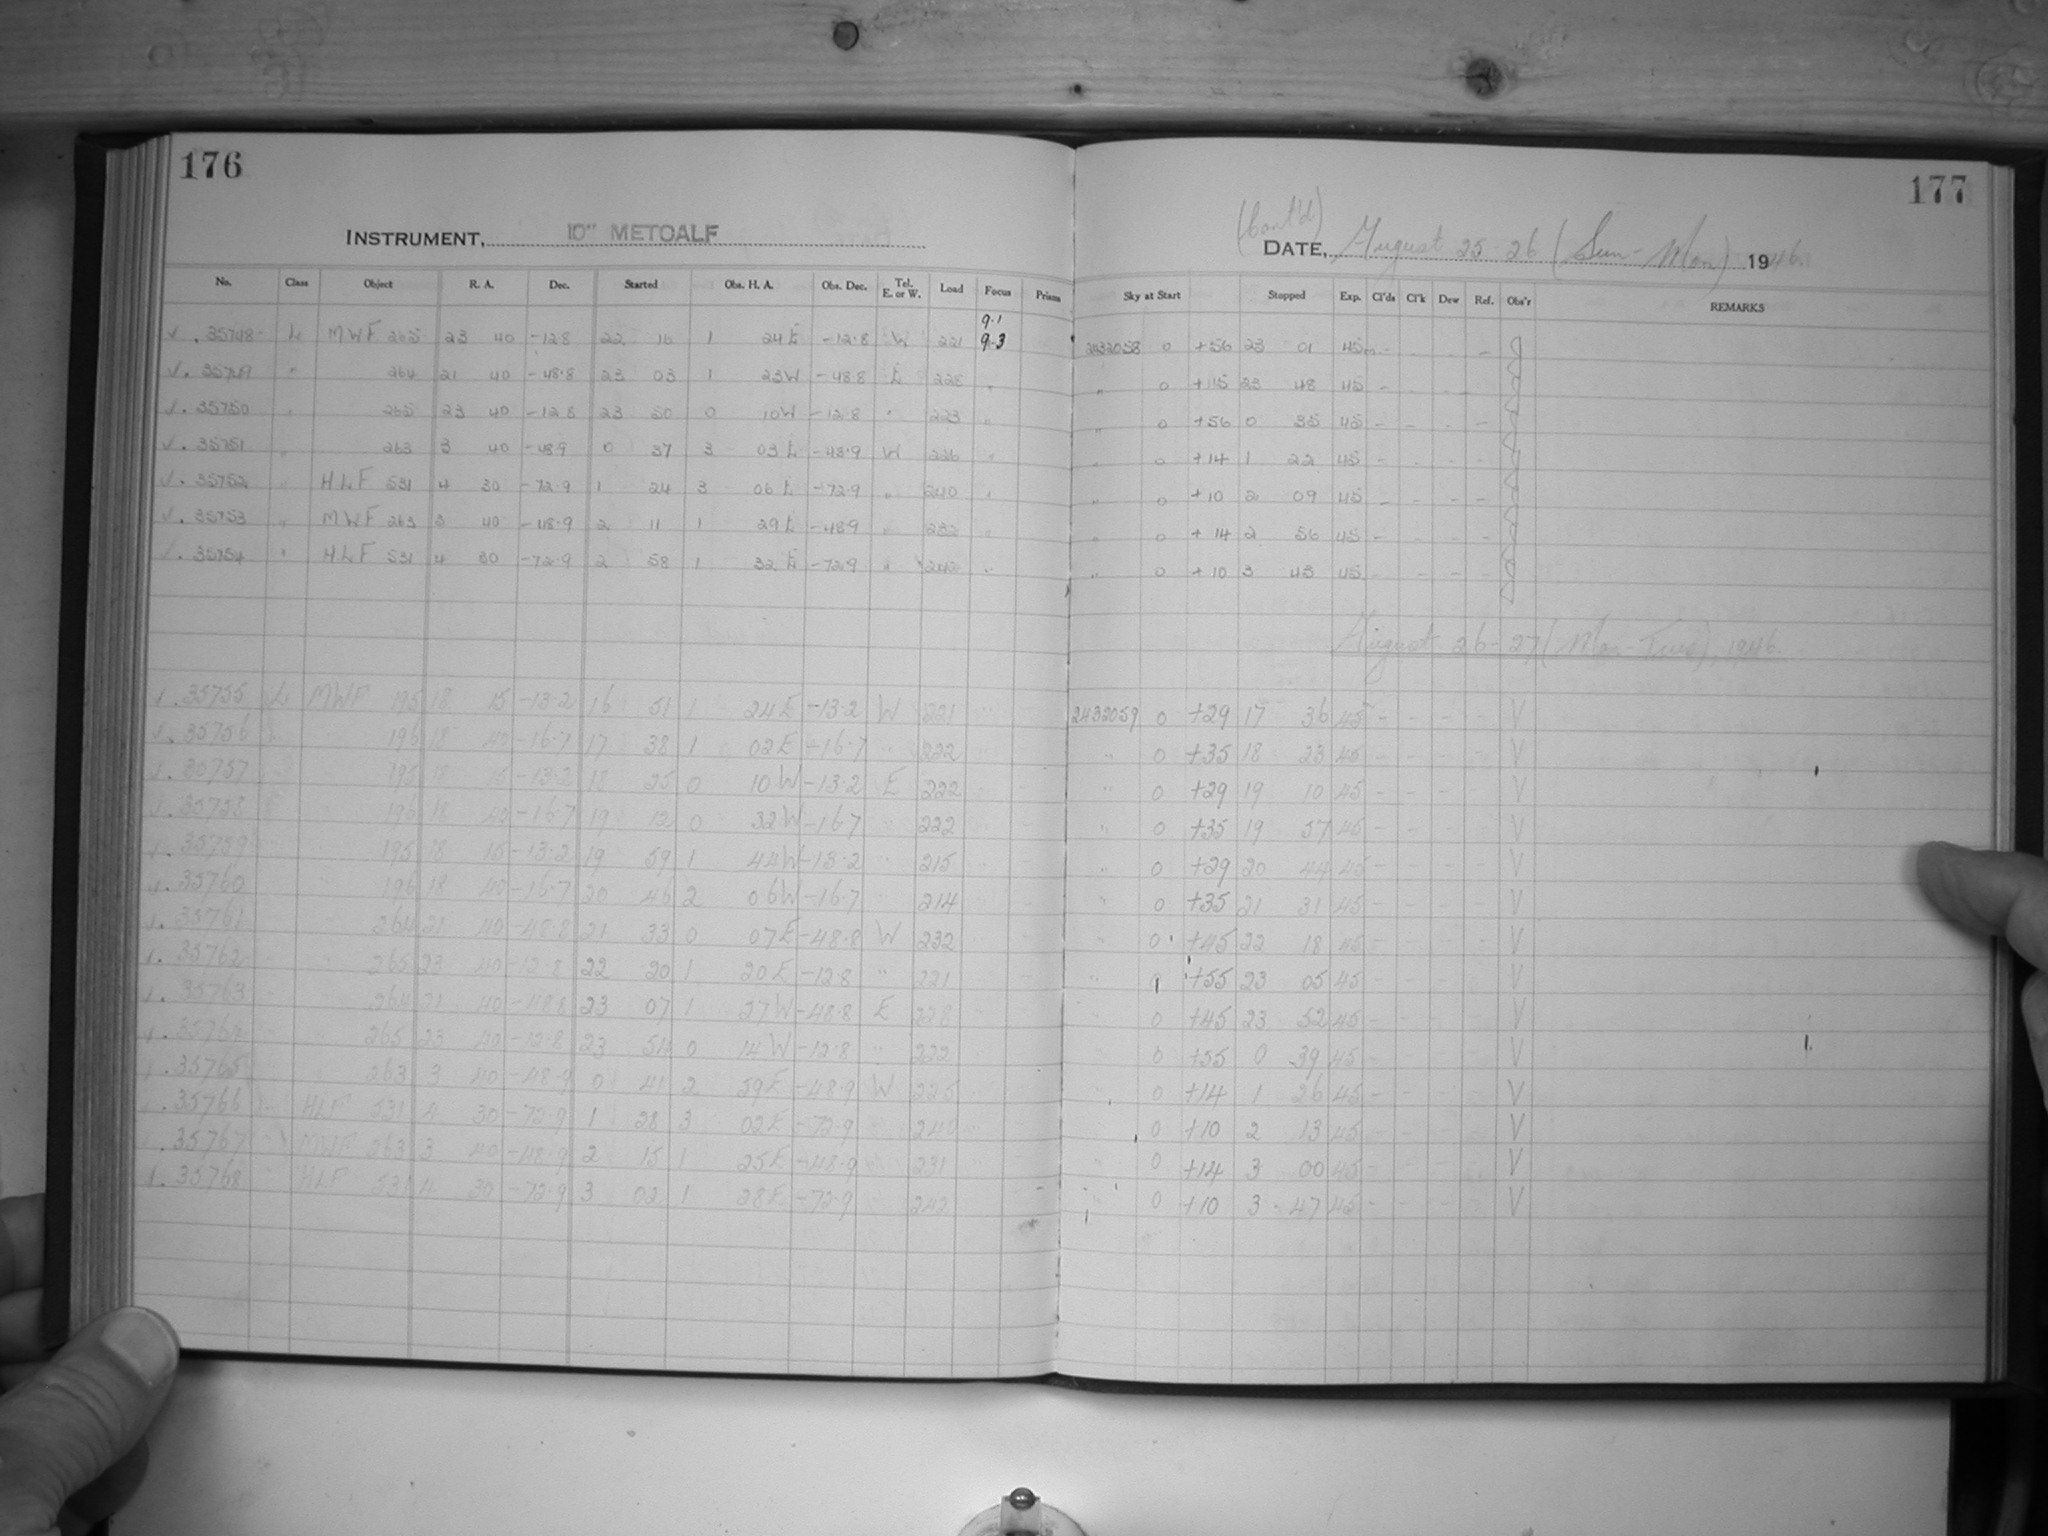 176
177
INSTRUMENT, 10" METCALF
(Cont'd)
DATE, August 25-26 (Sun-Mon) 1946.
No. Class Object R. A. Dec. Started Obs. H. A. Obs. Dec. Tel. E. or W. Load Focus Prism Sky at Start Stopped Exp. Cl'ds Cl'k Dew Ref. Obs'r REMARKS
9.1
√ . 35748 L MWF 265 23 40 -12.8 22 16 1 24 E -12.8 W 221 9.3 2432058 0 +56 23 01 45m - - - -
√ . 35749 " 264 21 40 -48.8 23 03 1 23W -48.8 E 228 " " 0 +45 23 48 45 - - - -
√ . 35750 " 265 23 40 -12.8 23 50 0 10W -12.8 " 223 " " 0 +56 0 35 45 - - - -
√ . 35751 " 263 3 40 -48.9 0 37 3 03 E -48.9 W 226 " " 0 +14 1 22 45 - - - -
√ . 35752 " HLF 531 4 30 -72.9 1 24 3 06 E -72.9 " 240 " " 0 +10 2 09 45 - - - -
√ . 35753 " MWF 263 3 40 -48.9 2 11 1 29 E -48.9 " 232 " " 0 +14 2 56 45 - - - -
√ . 35754 " HLF 531 4 30 -72.9 2 58 1 32 E -72.9 " 242 " " 0 +10 3 43 45 - - - -
August 26-27 (Mon-Tues), 1946.
√ . 35755 L MWF 195 18 15 -13.2 16 51 1 24 E -13.2 W 221 2432059 0 +29 17 36 45 - - - - V
√ . 35756 196 18 40 -16.7 17 38 1 02 E -16.7 " 222 " 0 +35 18 23 45 - - - - V
√ . 35757 195 18 15 -13.2 18 25 0 10 W -13.2 E 222 " 0 +29 19 10 45 - - - - V
√ . 35758 196 18 40 -16.7 19 12 0 32 W -16.7 " 222 " 0 +35 19 57 45 - - - - V
√ . 35759 195 18 15 -13.2 19 59 1 44 W -13.2 " 215 " 0 +29 20 44 45 - - - - V
√ . 35760 196 18 40 -16.7 20 46 2 06 W -16.7 214 " 0 +35 21 31 45 - - - - V
√ . 35761 264 21 40 -48.8 21 33 0 07 E -48.8 W 232 " 0 +45 22 18 45 - - - - V
√ . 35762 265 23 40 -12.8 22 20 1 20 E -12.8 " 221 " 0 +55 23 05 45 - - - - V
√ . 35763 264 21 40 -48.8 23 07 1 27 W -48.8 E 228 0 +45 23 52 45 - - - - V
√ . 35764 265 23 40 -12.8 23 54 0 14 W -12.8 " 222 0 +55 0 39 45 - - - - V
√ . 35765 263 3 40 -48.9 0 41 2 59 E -48.9 W 225 0 +14 1 26 45 - - - - V
√ . 35766 HLF 531 4 30 -72.9 1 28 3 02 E -72.9 240 0 +10 2 13 45 - - - - V
. 35767 MWF 263 3 40 -48.9 2 15 1 25 E -48.9 231 0 +14 3 00 45 - - - - V
√ . 35768 HLF 531 4 30 -72.9 3 02 1 28 E -72.9 242 0 +10 3 47 45 - - - - V